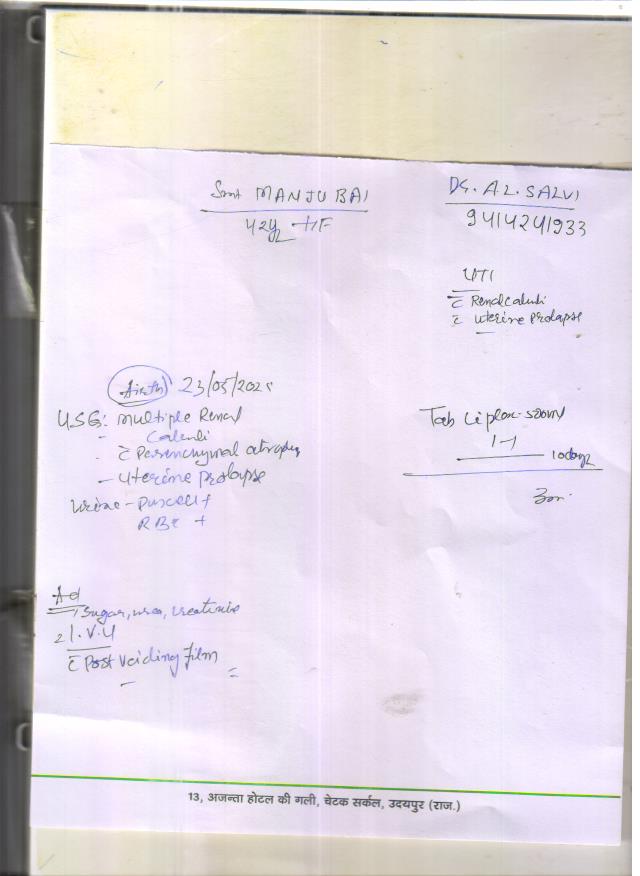 Smt MANJU BAI
42y /F
Dr. A.L. SALVI
9414241933
UTI
c̄ Renal calculi
c̄ Uterine Prolapse
23/05/2025
USG: Multiple Renal
Calculi
- c̄ Parenchymal atrophy
- Uterine prolapse
Urine - Puscell +
RBC +
Tab Ciplox 500
1-1
10days
Ad
1) Sugar, urea, creatinine
2) I.V.U
c̄ Post Voiding Film
13, अजन्ता होटल की गली, चेटक सर्कल, उदयपुर (राज.)